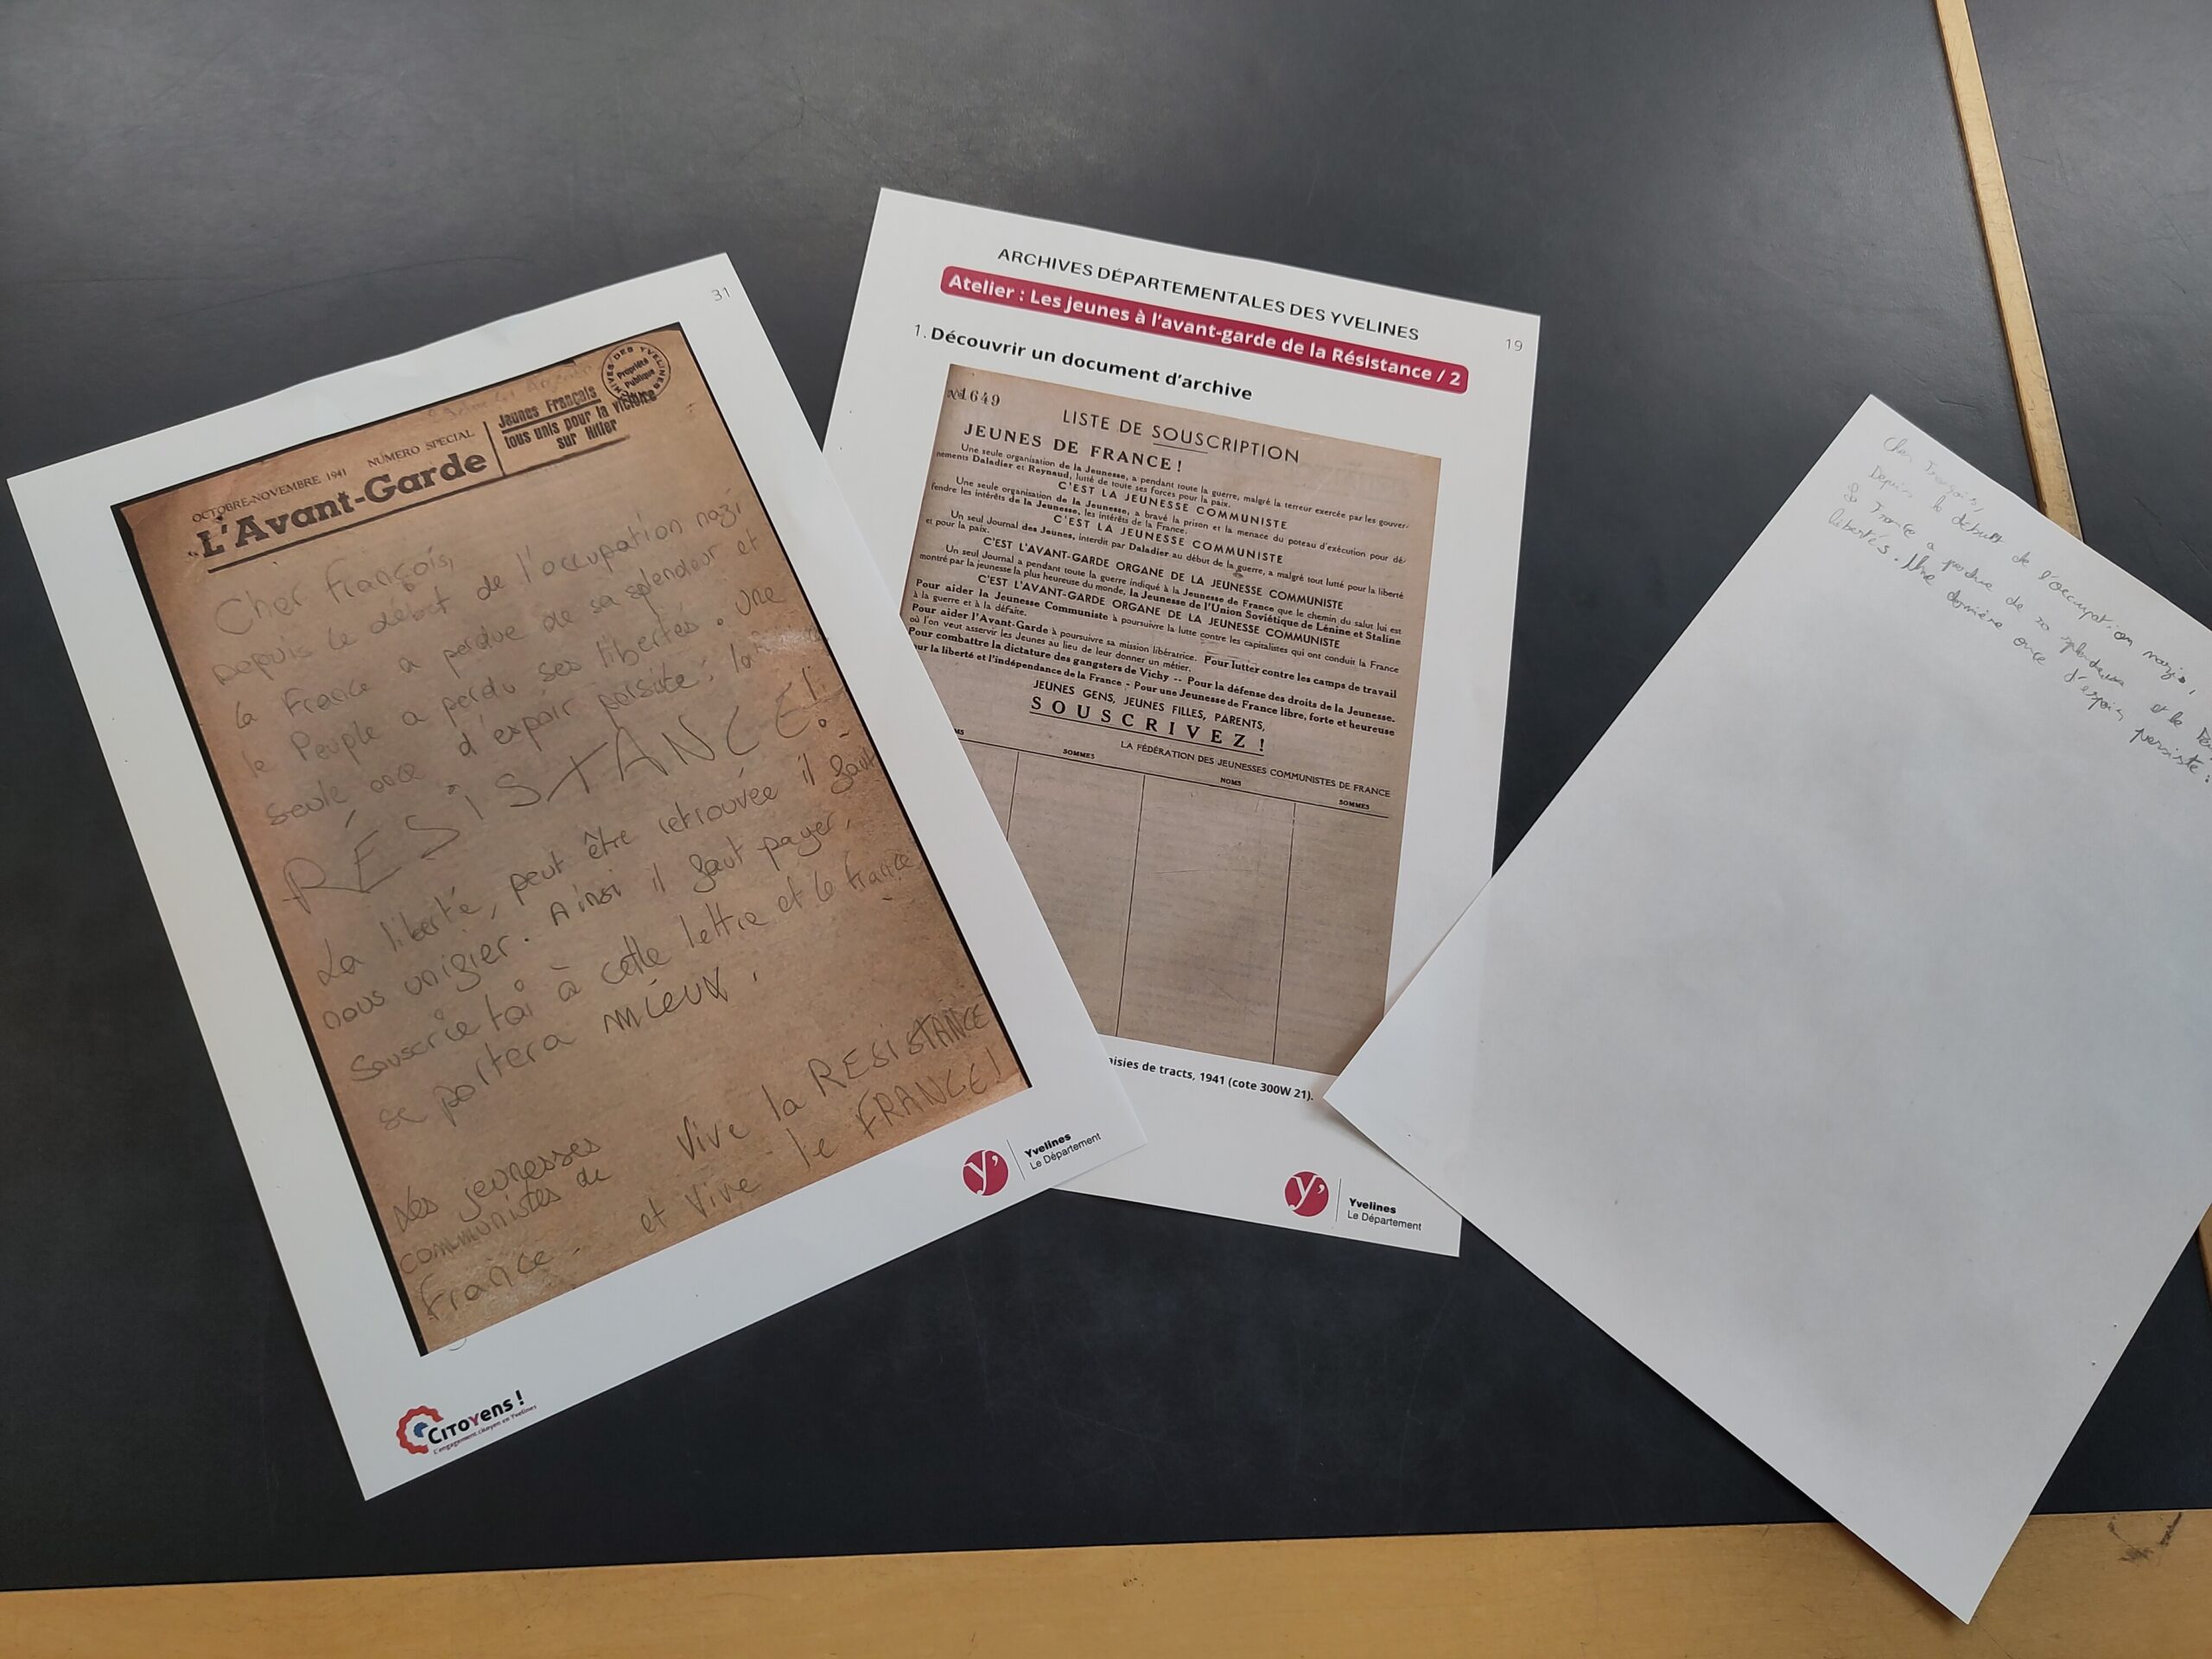 31
ARCHIVES DES YVELINES
Propriété
Publique
OCTOBRE-NOVEMBRE 1941 NUMERO SPECIAL
L'Avant-Garde
Jeunes Français
tous unis pour la victoire
sur Hitler
Cher François,
Depuis le début de l'occupation nazi
la France a perdue de sa splendeur et
le Peuple a perdu ses libertés. Une
seule once d'expoir persiste : la
RÉSISTANCE !
La liberté, peut être retrouvée il faut
nous unifier. Ainsi il faut payer,
Souscrie toi à cette lettre et la France
se portera mieux.
Les jeunesses
communistes de
France.
Vive la RESISTANCE
et Vive le FRANCE !
CiToYens !
L'engagement citoyen en Yvelines
Yvelines
Le Département
ARCHIVES DÉPARTEMENTALES DES YVELINES
19
Atelier : Les jeunes à l'avant-garde de la Résistance / 2
1. Découvrir un document d'archive
№1649
LISTE DE SOUSCRIPTION
JEUNES DE FRANCE !
Une seule organisation de la Jeunesse, a pendant toute la guerre, malgré la terreur exercée par les gouver-
nements Daladier et Reynaud, lutté de toute ses forces pour la paix.
C'EST LA JEUNESSE COMMUNISTE
Une seule organisation de la Jeunesse, a bravé la prison et la menace du poteau d'exécution pour dé-
fendre les intérêts de la Jeunesse, les intérêts de la France.
C'EST LA JEUNESSE COMMUNISTE
Un seul Journal des Jeunes, interdit par Daladier au début de la guerre, a malgré tout lutté pour la liberté
et pour la paix.
C'EST L'AVANT-GARDE ORGANE DE LA JEUNESSE COMMUNISTE
Un seul Journal a pendant toute la guerre indiqué à la Jeunesse de France que le chemin du salut lui est
montré par la jeunesse la plus heureuse du monde, la Jeunesse de l'Union Soviétique de Lénine et Staline
C'EST L'AVANT-GARDE ORGANE DE LA JEUNESSE COMMUNISTE
Pour aider la Jeunesse Communiste à poursuivre la lutte contre les capitalistes qui ont conduit la France
à la guerre et à la défaite.
Pour aider l'Avant-Garde à poursuivre sa mission libératrice. Pour lutter contre les camps de travail
où l'on veut asservir les Jeunes au lieu de leur donner un métier.
Pour combattre la dictature des gangsters de Vichy -- Pour la défense des droits de la Jeunesse.
our la liberté et l'indépendance de la France - Pour une Jeunesse de France libre, forte et heureuse
JEUNES GENS, JEUNES FILLES, PARENTS,
SOUSCRIVEZ !
LA FÉDÉRATION DES JEUNESSES COMMUNISTES DE FRANCE
MS SOMMES NOMS SOMMES
aisies de tracts, 1941 (cote 300W 21).
Yvelines
Le Département
Cher François,
Depuis le début de l'occupation nazie,
la France a perdue de sa splendeur et le
libertés. Une dernière once d'espoir persiste :